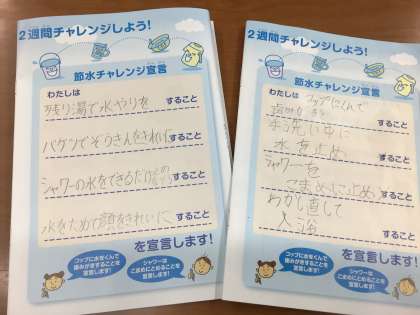 2週間チャレンジしよう!
節水チャレンジ宣言
わたしは
残り湯で水やりを
すること
バケツでぞうきんをきれいに
すること
シャワーの水をできるだけ
すること
水をためて顔をきれいに
すること
を宣言します!
コップに水をくんで
歯みがきすることを
宣言します!
シャワーは
こまめにとめることを
宣言します!
2週間チャレンジしよう!
節水チャレンジ宣言
わたしは コップにくんで
すること
手洗い中に
水を止め
すること
シャワーを
こまめに止め
すること
わかし直して
入浴
すること
を宣言します!
コップに水をくんで
歯みがきすることを
宣言します!
シャワーは
こまめにとめることを
宣言します!